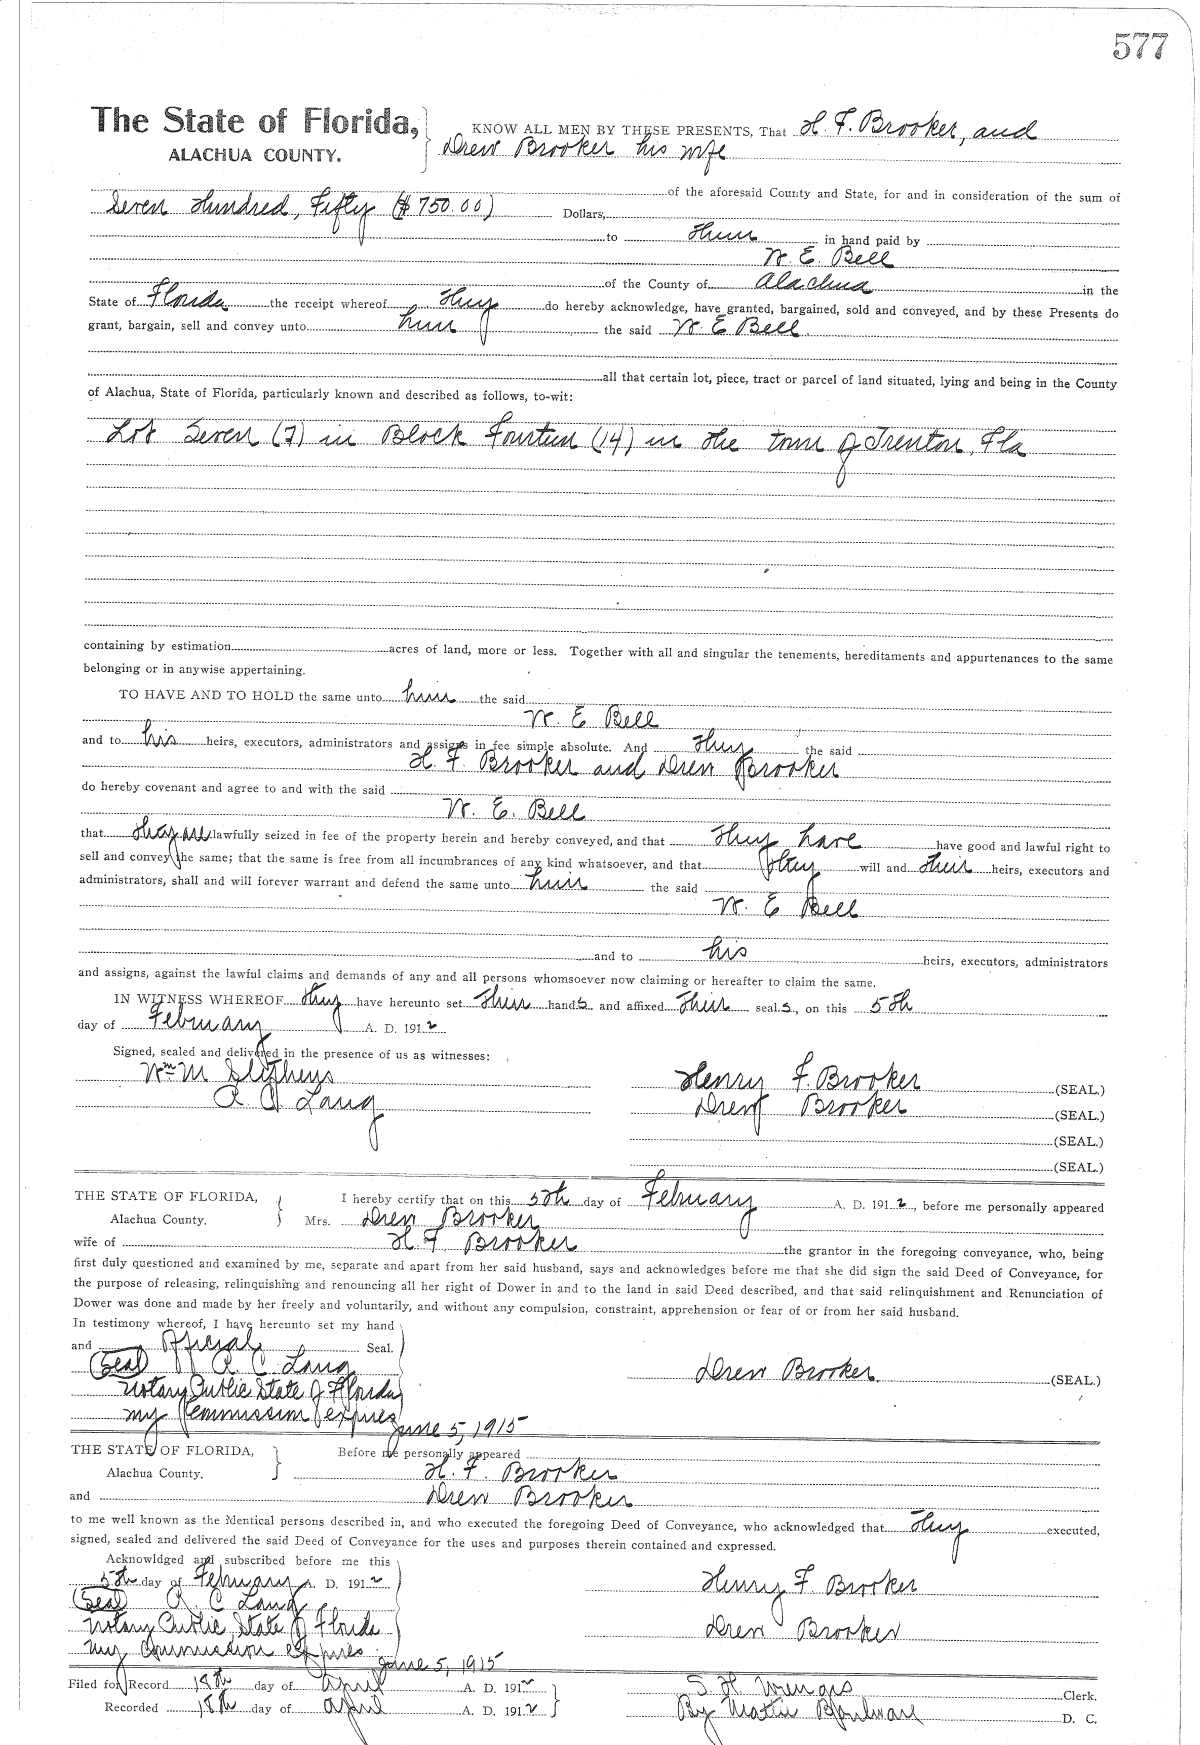 577
The State of Florida, KNOW ALL MEN BY THESE PRESENTS, That H. F. Brooker, and
ALACHUA COUNTY. Drew Brooker his wife
of the aforesaid County and State, for and in consideration of the sum of
Seven Hundred, Fifty ($750.00) Dollars,
to them in hand paid by
W. E. Bell
of the County of Alachua in the
State of Florida the receipt whereof they do hereby acknowledge, have granted, bargained, sold and conveyed, and by these Presents do
grant, bargain, sell and convey unto him the said W. E Bell
all that certain lot, piece, tract or parcel of land situated, lying and being in the County
of Alachua, State of Florida, particularly known and described as follows, to-wit:
Lot Seven (7) in Block Fourteen (14) in the town of Trenton, Fla
containing by estimation acres of land, more or less. Together with all and singular the tenements, hereditaments and appurtenances to the same
belonging or in anywise appertaining.
TO HAVE AND TO HOLD the same unto him the said
W. E Bell
and to his heirs, executors, administrators and assigns in fee simple absolute. And they the said
H. F. Brooker and Drew Brooker
do hereby covenant and agree to and with the said
W. E. Bell
that they are lawfully seized in fee of the property herein and hereby conveyed, and that they have have good and lawful right to
sell and convey the same; that the same is free from all incumbrances of any kind whatsoever, and that they will and their heirs, executors and
administrators, shall and will forever warrant and defend the same unto him the said
W. E Bell
and to his heirs, executors, administrators
and assigns, against the lawful claims and demands of any and all persons whomsoever now claiming or hereafter to claim the same.
IN WITNESS WHEREOF they have hereunto set their hands and affixed their seals, on this 5th
day of February A. D. 1912
Signed, sealed and delivered in the presence of us as witnesses:
Wm M Stephens Henry F. Brooker (SEAL.)
R C Lang Drew Brooker (SEAL.)
(SEAL.)
(SEAL.)
THE STATE OF FLORIDA, I hereby certify that on this 5th day of February A. D. 1912, before me personally appeared
Alachua County. Mrs. Drew Brooker
wife of H F Brooker the grantor in the foregoing conveyance, who, being
first duly questioned and examined by me, separate and apart from her said husband, says and acknowledges before me that she did sign the said Deed of Conveyance, for
the purpose of releasing, relinquishing and renouncing all her right of Dower in and to the land in said Deed described, and that said relinquishment and Renunciation of
Dower was done and made by her freely and voluntarily, and without any compulsion, constraint, apprehension or fear of or from her said husband.
In testimony whereof, I have hereunto set my hand
and official Seal.
(Seal) R C Lang Drew Brooker. (SEAL.)
Notary Public State of Florida
my commission expires
June 5, 1915
THE STATE OF FLORIDA, Before me personally appeared
Alachua County. H. F. Brooker
and Drew Brooker
to me well known as the identical persons described in, and who executed the foregoing Deed of Conveyance, who acknowledged that they executed,
signed, sealed and delivered the said Deed of Conveyance for the uses and purposes therein contained and expressed.
Acknowldged and subscribed before me this
5th day of February A. D. 1912 Henry F Brooker
(Seal) R C Lang
Notary Public, State of Florida Drew Brooker
my commission expires
June 5, 1915
Filed for Record 18th day of April A. D. 1912 S. H. Wienges Clerk.
Recorded 18th day of April A. D. 1912 By Mattie Boulware D. C.